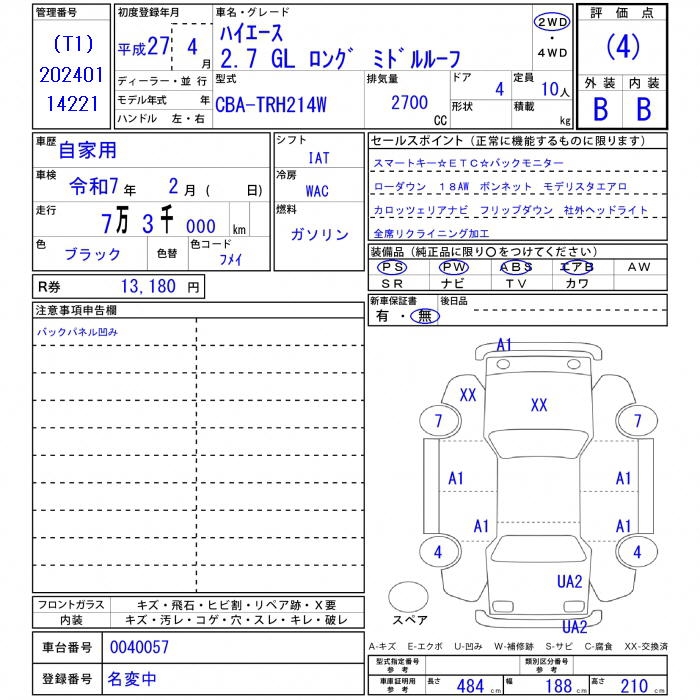 管理番号
(T1)
202401
14221
初度登録年月
平成27年 4月
車名・グレード
ハイエース
2.7 GL ロング ミドルルーフ
2WD
・
4WD
評価点
(4)
外装 内装
B B
ディーラー・並行
モデル年式 年
ハンドル 左・右
型式
CBA-TRH214W
排気量
2700
CC
ドア
4
形状
定員
10人
積載
kg
車歴
自家用
車検
令和7年 2月 ( 日)
走行
7万 3千 000 km
色
ブラック
色替
色コード
フメイ
シフト
IAT
冷房
WAC
燃料
ガソリン
セールスポイント（正常に機能するものに限ります）
スマートキー☆ETC☆バックモニター
ローダウン 18AW ボンネット モデリスタエアロ
カロッツェリアナビ フリップダウン 社外ヘッドライト
全席リクライニング加工
装備品（純正品に限り〇をつけてください）
PS PW ABS エアB AW
SR ナビ TV カワ
R券 13,180 円
新車保証書
有・無
後日品
注意事項申告欄
バックパネル凹み
A1
XX
XX
7
7
A1
A1
A1
A1
4
4
UA2
UA2
スペア
フロントガラス キズ・飛石・ヒビ割・リペア跡・X要
内装 キズ・汚レ・コゲ・穴・スレ・キレ・破レ
車台番号 0040057
登録番号 名変中
A-キズ E-エクボ U-凹み W-補修跡 S-サビ C-腐食 XX-交換済
型式指定番号
参考
類別区分番号
参考
車庫証明用
参考
長さ 484 cm 幅 188 cm 高さ 210 cm